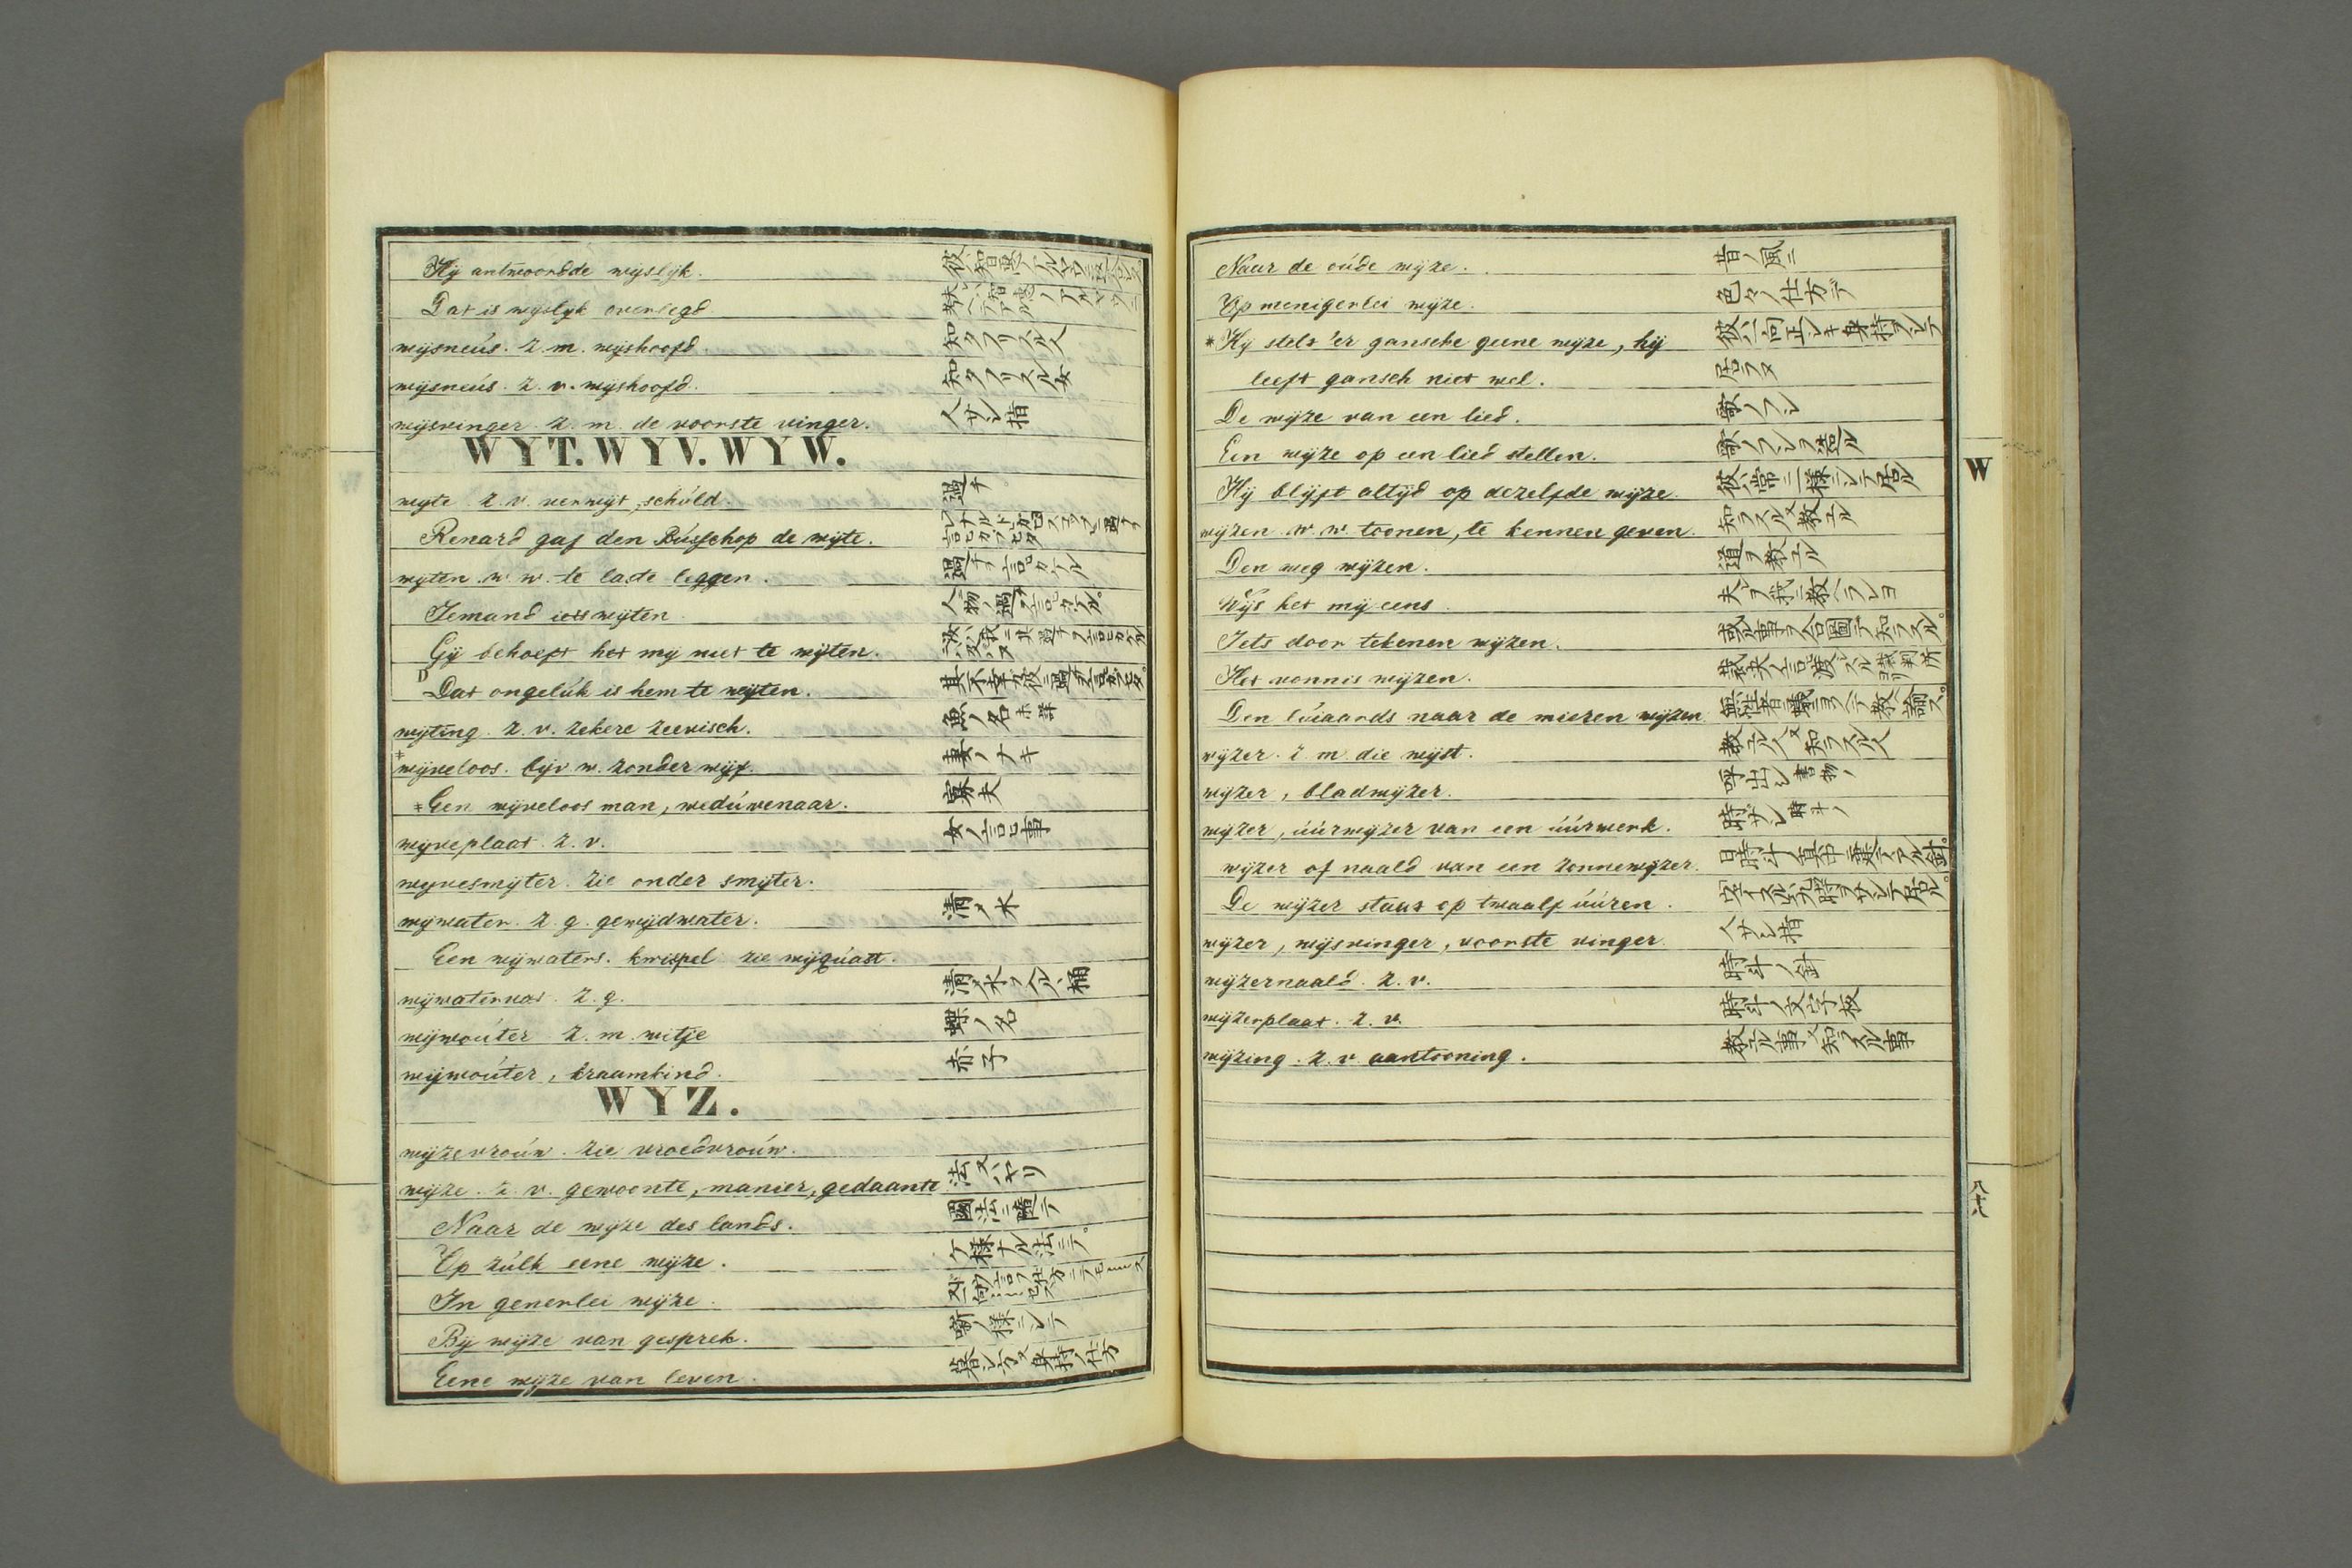 Hij antwoordde wijslijk. 彼ハ智恵ノアル
Dat is wijslijk overlegd
wijsneús. z. m. wijshoofd. 知タフリスル人
wijsneús. z. v. wijshoofd. 知タフリスル女
wijsvinger. z. m. de voorste vinger. 人サシ指
WYT. WYV. WYW.
wijte. z. v. verwijt, schúld. 過チ
Renard gaf den Bússchop de wijte.
wijten. w. w. te laste leggen. 過チヲ言ヒカケル
Iemand iets wijten 人ニ物ノ過チヲ言ヒカケル。
Gij behoeft het mij niet te wijten.
Dat ongelúk is hem te wijten.
wijting. z. v. zekere zeevisch. 魚ノ名 未詳
*wijveloos. bijv. w. zonder wijf. 妻ノナキ
*Een wijveloos man, wedúwenaar. 寡夫
wijveplaat. z. v. 女ノ言ヒ事
wijvesmijter. zie onder smijter.
wijwater. z. g. gewijdwater. 清メ水
Een wijwaters. kwispel zie wijqúast.
wijwatervat. z. g. 清メ水ヲ入ルヽ桶
wijwoúter z. m. witje 蝶ノ名
wijwoúter, kraamkind. 赤子
WYZ.
wijzevroúw. zie vroedvroúw.
wijze. z. v. gewoonte, manier, gedaante 法 又ハヤリ
Naar de wijze des lands. 國法ニ隨テ
Op zúlk eene wijze. ケ様ナル法ニテ。
In generlei wijze.
Bij wijze van gesprek. 噺ノ様ニシテ
Eene wijze van leven. 暮シ方又身持ノ仕方
Naar de oúde wijze. 昔ノ風ニ
Op menigerlei wijze. 色々ノ仕方デ
*Hij stelt 'er gansche geene wijze, hij 彼ハ一向正シキ身持ヲシテ
leeft gansch niet wel. 居ラヌ
De wijze van een lied. 歌ノフシ
Een wijze op een lied stellen. 歌ノフシヲ造ル
Hij blijft altijd op dezelfde wijze. 彼ハ常ニ一様ニシテ居ル
wijzen. w. w. toonen, te kennen geven. 知ラスル又教エル
Den weg wijzen. 道ヲ教エル
Wijs het mij eens. 夫レヲ我ニ教ヘラレヨ
Iets door tekenen wijzen. 或ル事ヲ合圖デ知ラスル。
Het vonnis wijzen.
Den lúiaards naar de mieren wijzen
wijzer. z. m. die wijst. 教エル人又知ラスル人
wijzer, bladwijzer. 呼出シ 書物ノ
wijzer, úúrwijzer van een úúrwerk. 時サシ 時斗ノ
wijzer of naald van een zonnewijzer. 日時斗ノ真中ニ乗テアル針。
De wijzer staat op twaalf úúren.
wijzer, wijsvinger, voorste vinger. 人サシ指
wijzernaald. z. v. 時斗ノ針
wijzerplaat. z. v. 時斗ノ文字板
wijzing. z. v. aantooning. 教エル事又知ラスル事
W
八十八